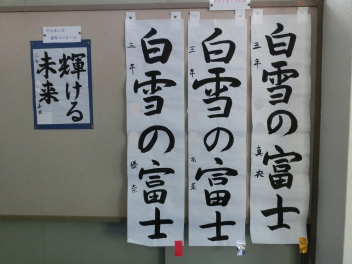 輝ける
未来
白雪の富士
三年
優奈
白雪の富士
三年
白雪の富士
三年
真央